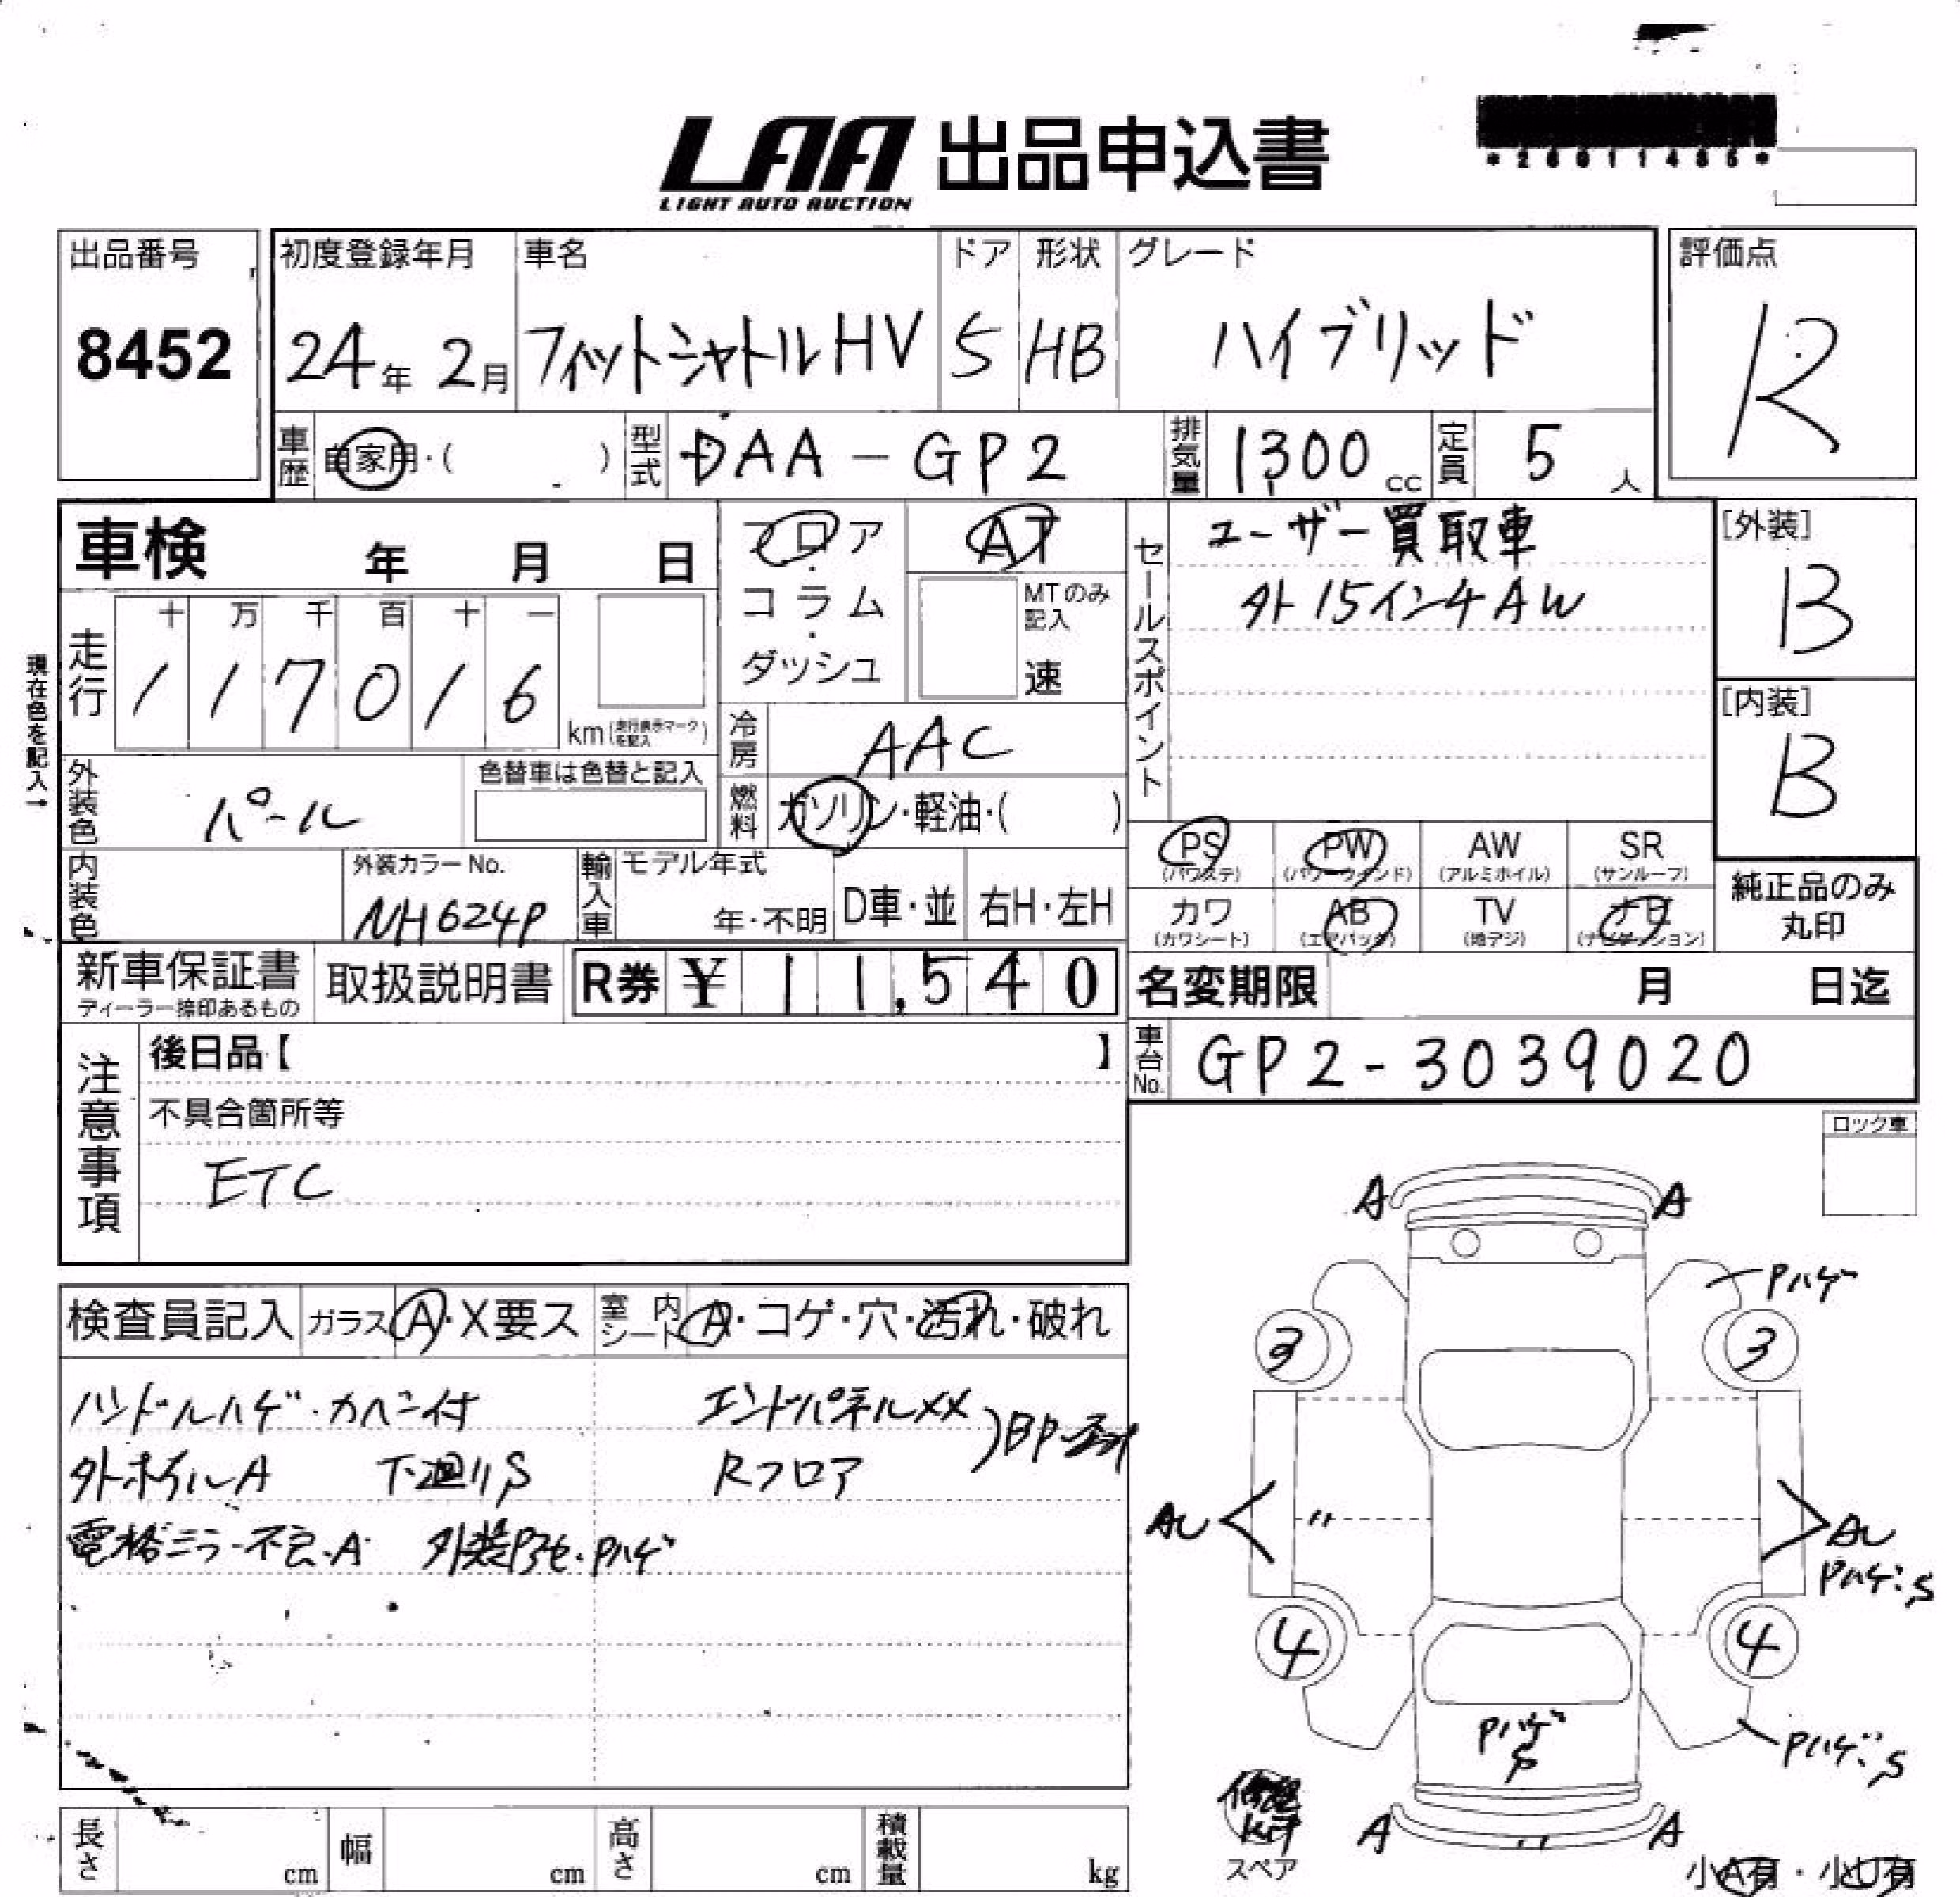 LAA 出品申込書
LIGHT AUTO AUCTION
*26011485*
出品番号
8452
初度登録年月
24年 2月
車名
フィットシャトルHV
ドア
5
形状
HB
グレード
ハイブリッド
評価点
R
車歴 自家用・( )
型式 DAA-GP2
排気量 1,300 cc
定員 5 人
車検 年 月 日
フロア・コラム・ダッシュ
AT
MTのみ記入
速
セールスポイント
ユーザー買取車
外15インチAW
[外装]
B
[内装]
B
現在色を記入→
走行
十 万 千 百 十 一
1 1 7 0 1 6
km(走行表示マークを記入)
冷房 AAC
外装色 パール
色替車は色替と記入
燃料 ガソリン・軽油・( )
PS (パワステ)
PW (パワーウインド)
AW (アルミホイル)
SR (サンルーフ)
カワ (カワシート)
AB (エアバック)
TV (地デジ)
ナビ (ナビゲーション)
純正品のみ丸印
内装色
外装カラーNo.
NH624P
輸入車
モデル年式
年・不明
D車・並
右H・左H
新車保証書
ディーラー捺印あるもの
取扱説明書
R券 ¥ 11,540
名変期限 月 日迄
車台No. GP2-3039020
注意事項
後日品【 】
不具合箇所等
ETC
ロック車
検査員記入
ガラス A・X要ス
室内シート A・コゲ・穴・汚れ・破れ
ハンドルハゲ・カベン付
エンドパネルXX
外ホイルA 下廻りS
Rフロア
電格ミラー不良・A 外装 Pハゲ
A A
Pハゲ
3 3
AU 〃 AU
Pハゲ・S
4 4
Pハゲ
S
Pハゲ・S
A 〃 A
スペア
小A有・小U有
長さ cm
幅 cm
高さ cm
積載量 kg